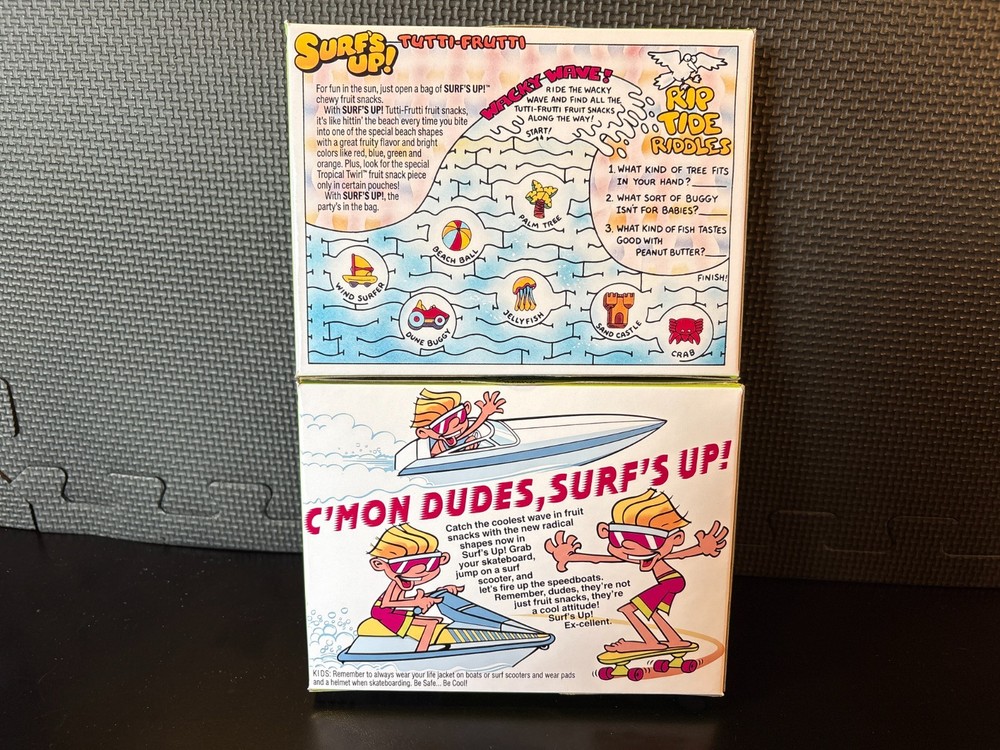 SURF'S UP! TUTTI-FRUTTI
For fun in the sun, just open a bag of SURF'S UP!™
chewy fruit snacks.
With SURF'S UP! Tutti-Frutti fruit snacks,
it's like hittin' the beach every time you bite
into one of the special beach shapes
with a great fruity flavor and bright
colors like red, blue, green and
orange. Plus, look for the special
Tropical Twirl™ fruit snack piece
only in certain pouches!
With SURF'S UP!, the
party's in the bag.
WACKY WAVE!
RIDE THE WACKY
WAVE AND FIND ALL THE
TUTTI-FRUTTI FRUIT SNACKS
ALONG THE WAY!
START!
RIP
TIDE
RIDDLES
1. WHAT KIND OF TREE FITS
IN YOUR HAND?
2. WHAT SORT OF BUGGY
ISN'T FOR BABIES?
3. WHAT KIND OF FISH TASTES
GOOD WITH
PEANUT BUTTER?
FINISH!
PALM TREE
BEACH BALL
WIND SURFER
DUNE BUGGY
JELLYFISH
SAND CASTLE
CRAB
C'MON DUDES, SURF'S UP!
Catch the coolest wave in fruit
snacks with the new radical
shapes now in
Surf's Up! Grab
your skateboard,
jump on a surf
scooter, and
let's fire up the speedboats.
Remember, dudes, they're not
just fruit snacks, they're
a cool attitude!
Surf's Up!
Ex-cellent.
KIDS: Remember to always wear your life jacket on boats or surf scooters and wear pads
and a helmet when skateboarding. Be Safe... Be Cool!